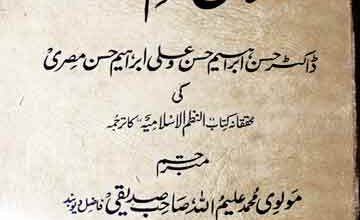 ڈاکٹر حسن ابراہیم حسن و علی ابراہیم حسن مصری
کی
محققانہ کتاب "النظم الاسلامیہ" کا ترجمہ
مترجم
مولوی محمد علیم اللہ صاحب صدیقی فاضل دیوبند